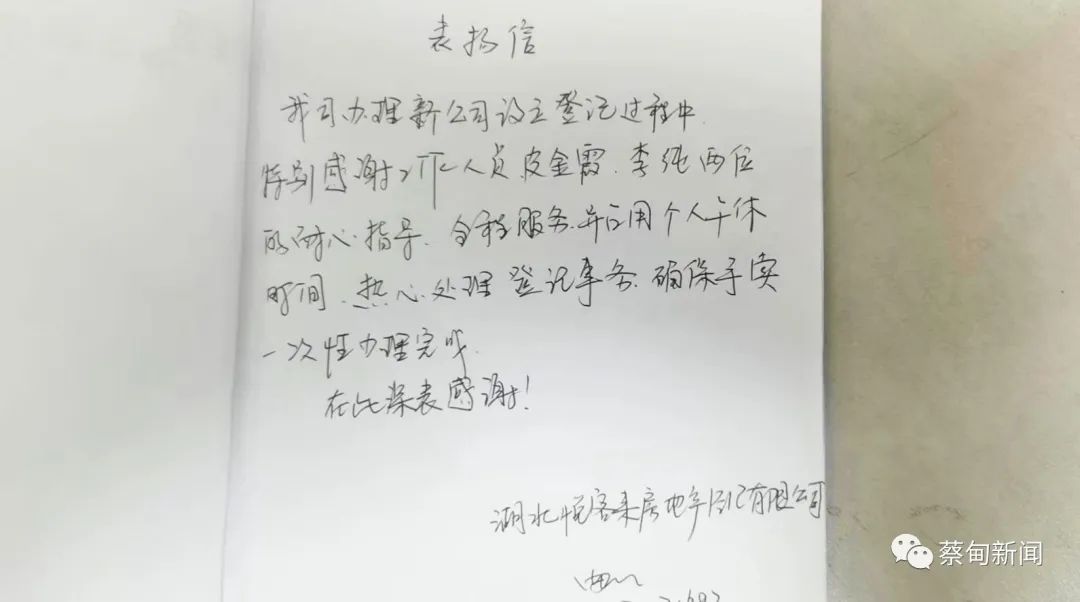 表扬信
我司办理新公司设立登记过程中
特别感谢工作人员皮金霞、李纯两位
的耐心指导、全程服务、并占用个人午休
时间、热心处理登记事务、确保手续
一次性办理完成.
在此深表感谢!
湖北悦客来房地产经纪有限公司
蔡甸新闻